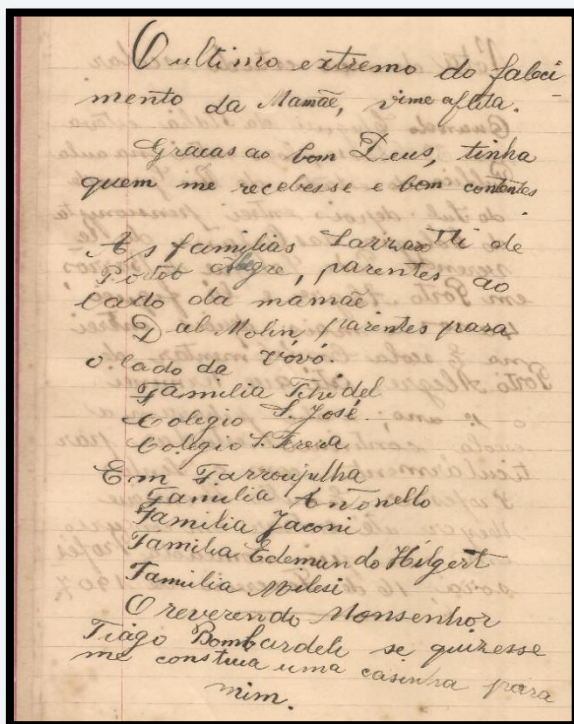 O ultimo extremo do faleci
mento da Mamãe, vime aflita.
Gracas ao bom Deus, tinha
quem me recebesse e bem contentes
As familias Sarzotti de
Porto Alegre, parentes ao
lado da mamãe
Dal Molin parentes para
o lado da Vóvó.
Familia
Colegio S. José.
Colegio S. Tereza
Em Farroupilha
Familia Antonello
Familia Jaconi
Familia Edemundo Hilgert
Familia Milesi
O reverendo Monsenhor
Tiago Bombardeli se quizesse
me construia uma casinha para
mim.